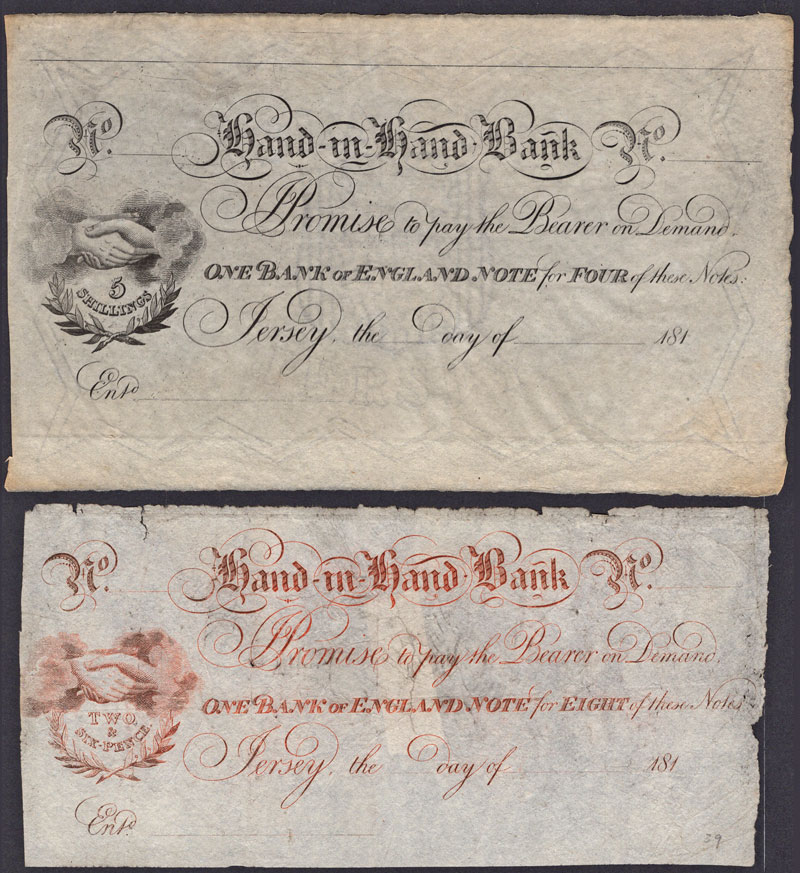 No. Hand-in-Hand Bank No.
I Promise to pay the Bearer on Demand,
ONE BANK OF ENGLAND NOTE for FOUR of these Notes:
5
SHILLINGS
Jersey, the day of 181
Entd.
No. Hand-in-Hand Bank No.
I Promise to pay the Bearer on Demand,
ONE BANK OF ENGLAND NOTE for EIGHT of these Notes
TWO
&
SIX-PENCE
Jersey, the day of 181
Entd.
39